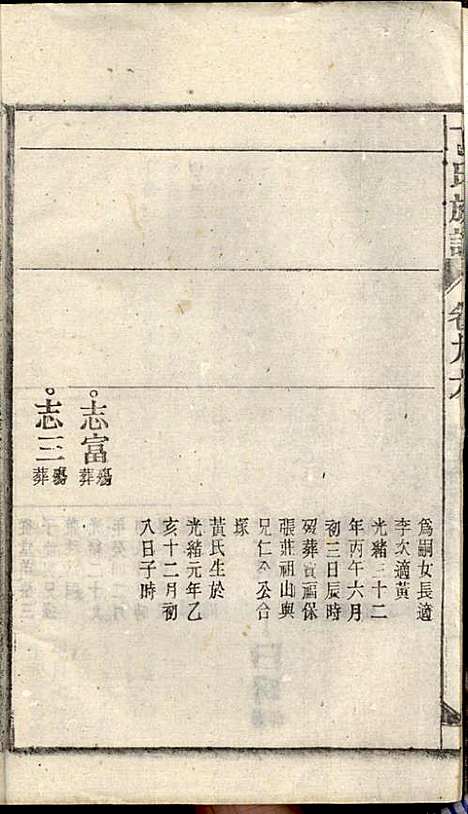 氏族譜 卷九六
為嗣女長適
李次適黃
光緒三十二
年丙午六月
初三日辰時
歿葬寶福保
張莊祖山與
兄仁全公合
塚
黃氏生於
光緒元年乙
亥十二月初
八日子時
志富 殤葬
志三 殤葬